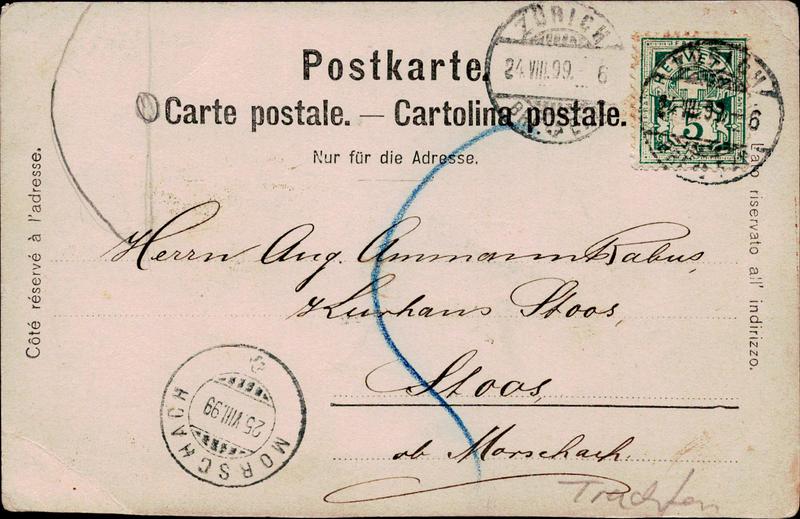 Postkarte.
Carte postale. — Cartolina postale.
Nur für die Adresse.
Côté réservé à l'adresse.
Lato riservato all' indirizzo.
ZÜRICH
24.VIII.99.-6
HELVETIA
5
6
Herrn Aug. Ammann Rabus,
Kurhaus Stoos,
Stoos,
ob Morschach.
MORSCHACH
25.VIII.99
Trachten